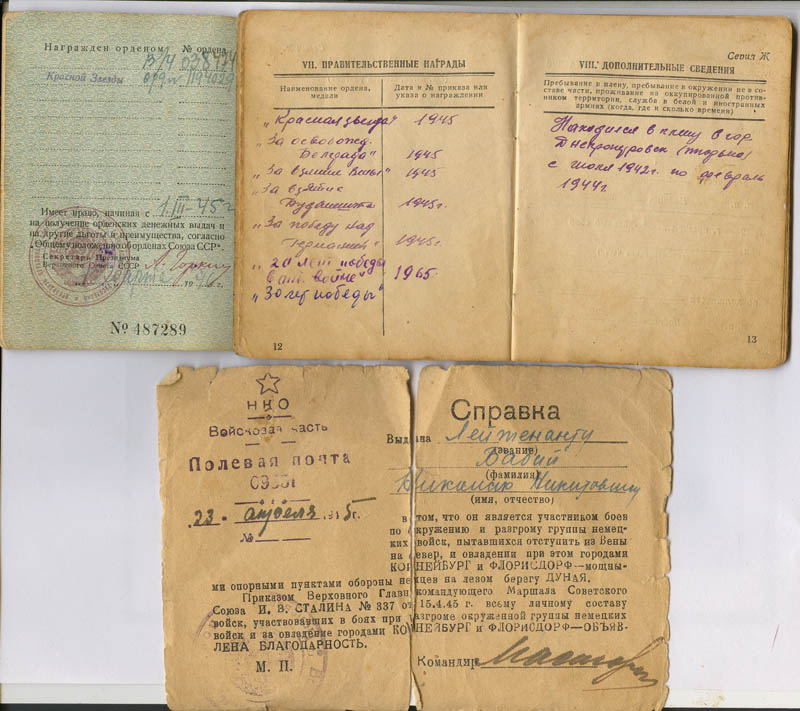 Награжден орденом № ордена
В/ч 038474
Красной Звезды орд№ 1194029
Имеет право, начиная с 1.III-45г
на получение орденских денежных выдач и
на другие льготы и преимущества, согласно
„Общему положению об орденах Союза ССР“.
Секретарь Президиума
Верховного Совета СССР А. Горкин
№ 487289
VII. ПРАВИТЕЛЬСТВЕННЫЕ НАГРАДЫ
Наименование ордена, медали
Дата и № приказа или указа о награждении
„Красная звезда“ 1945
„За освобожд.
Белграда“ 1945
„За взятие Вены“ 1945
„За взятие
Будапешта 1945г.
„За победу над
Германией“ 1945г.
„20 лет победы
в от. войне“ 1965.
„30 лет победы“
12
Серия Ж
VIII. ДОПОЛНИТЕЛЬНЫЕ СВЕДЕНИЯ
Пребывание в плену, пребывание в окружении не в со-
ставе части, проживание на оккупированной против-
ником территории, служба в белой и иностранных
армиях (когда, где и сколько времени)
Находился в плену в гор.
с июня 1942г. по февраль
1944г.
13
НКО
Войсковая часть
Полевая почта
23 - апреля 1945г.
№
Справка
Выдана Лейтенанту
(звание)
Бабий
(фамилия)
Никитовичу
(имя, отчество)
в том, что он является участником боев
по окружению и разгрому группы немец-
ких войск, пытавшихся отступить из Вены
на север, и овладении при этом городами
КОРНЕЙБУРГ и ФЛОРИСДОРФ—мощны-
ми опорными пунктами обороны немцев на левом берегу ДУНАЯ.
Приказом Верховного Главнокомандующего Маршала Советского
Союза И. В. СТАЛИНА № 337 от 15.4.45 г. всему личному составу
войск, участвовавших в боях при разгроме окруженной группы немецких
войск и за овладение городами КОРНЕЙБУРГ и ФЛОРИСДОРФ—ОБЪЯВ-
ЛЕНА БЛАГОДАРНОСТЬ.
М. П.
Командир